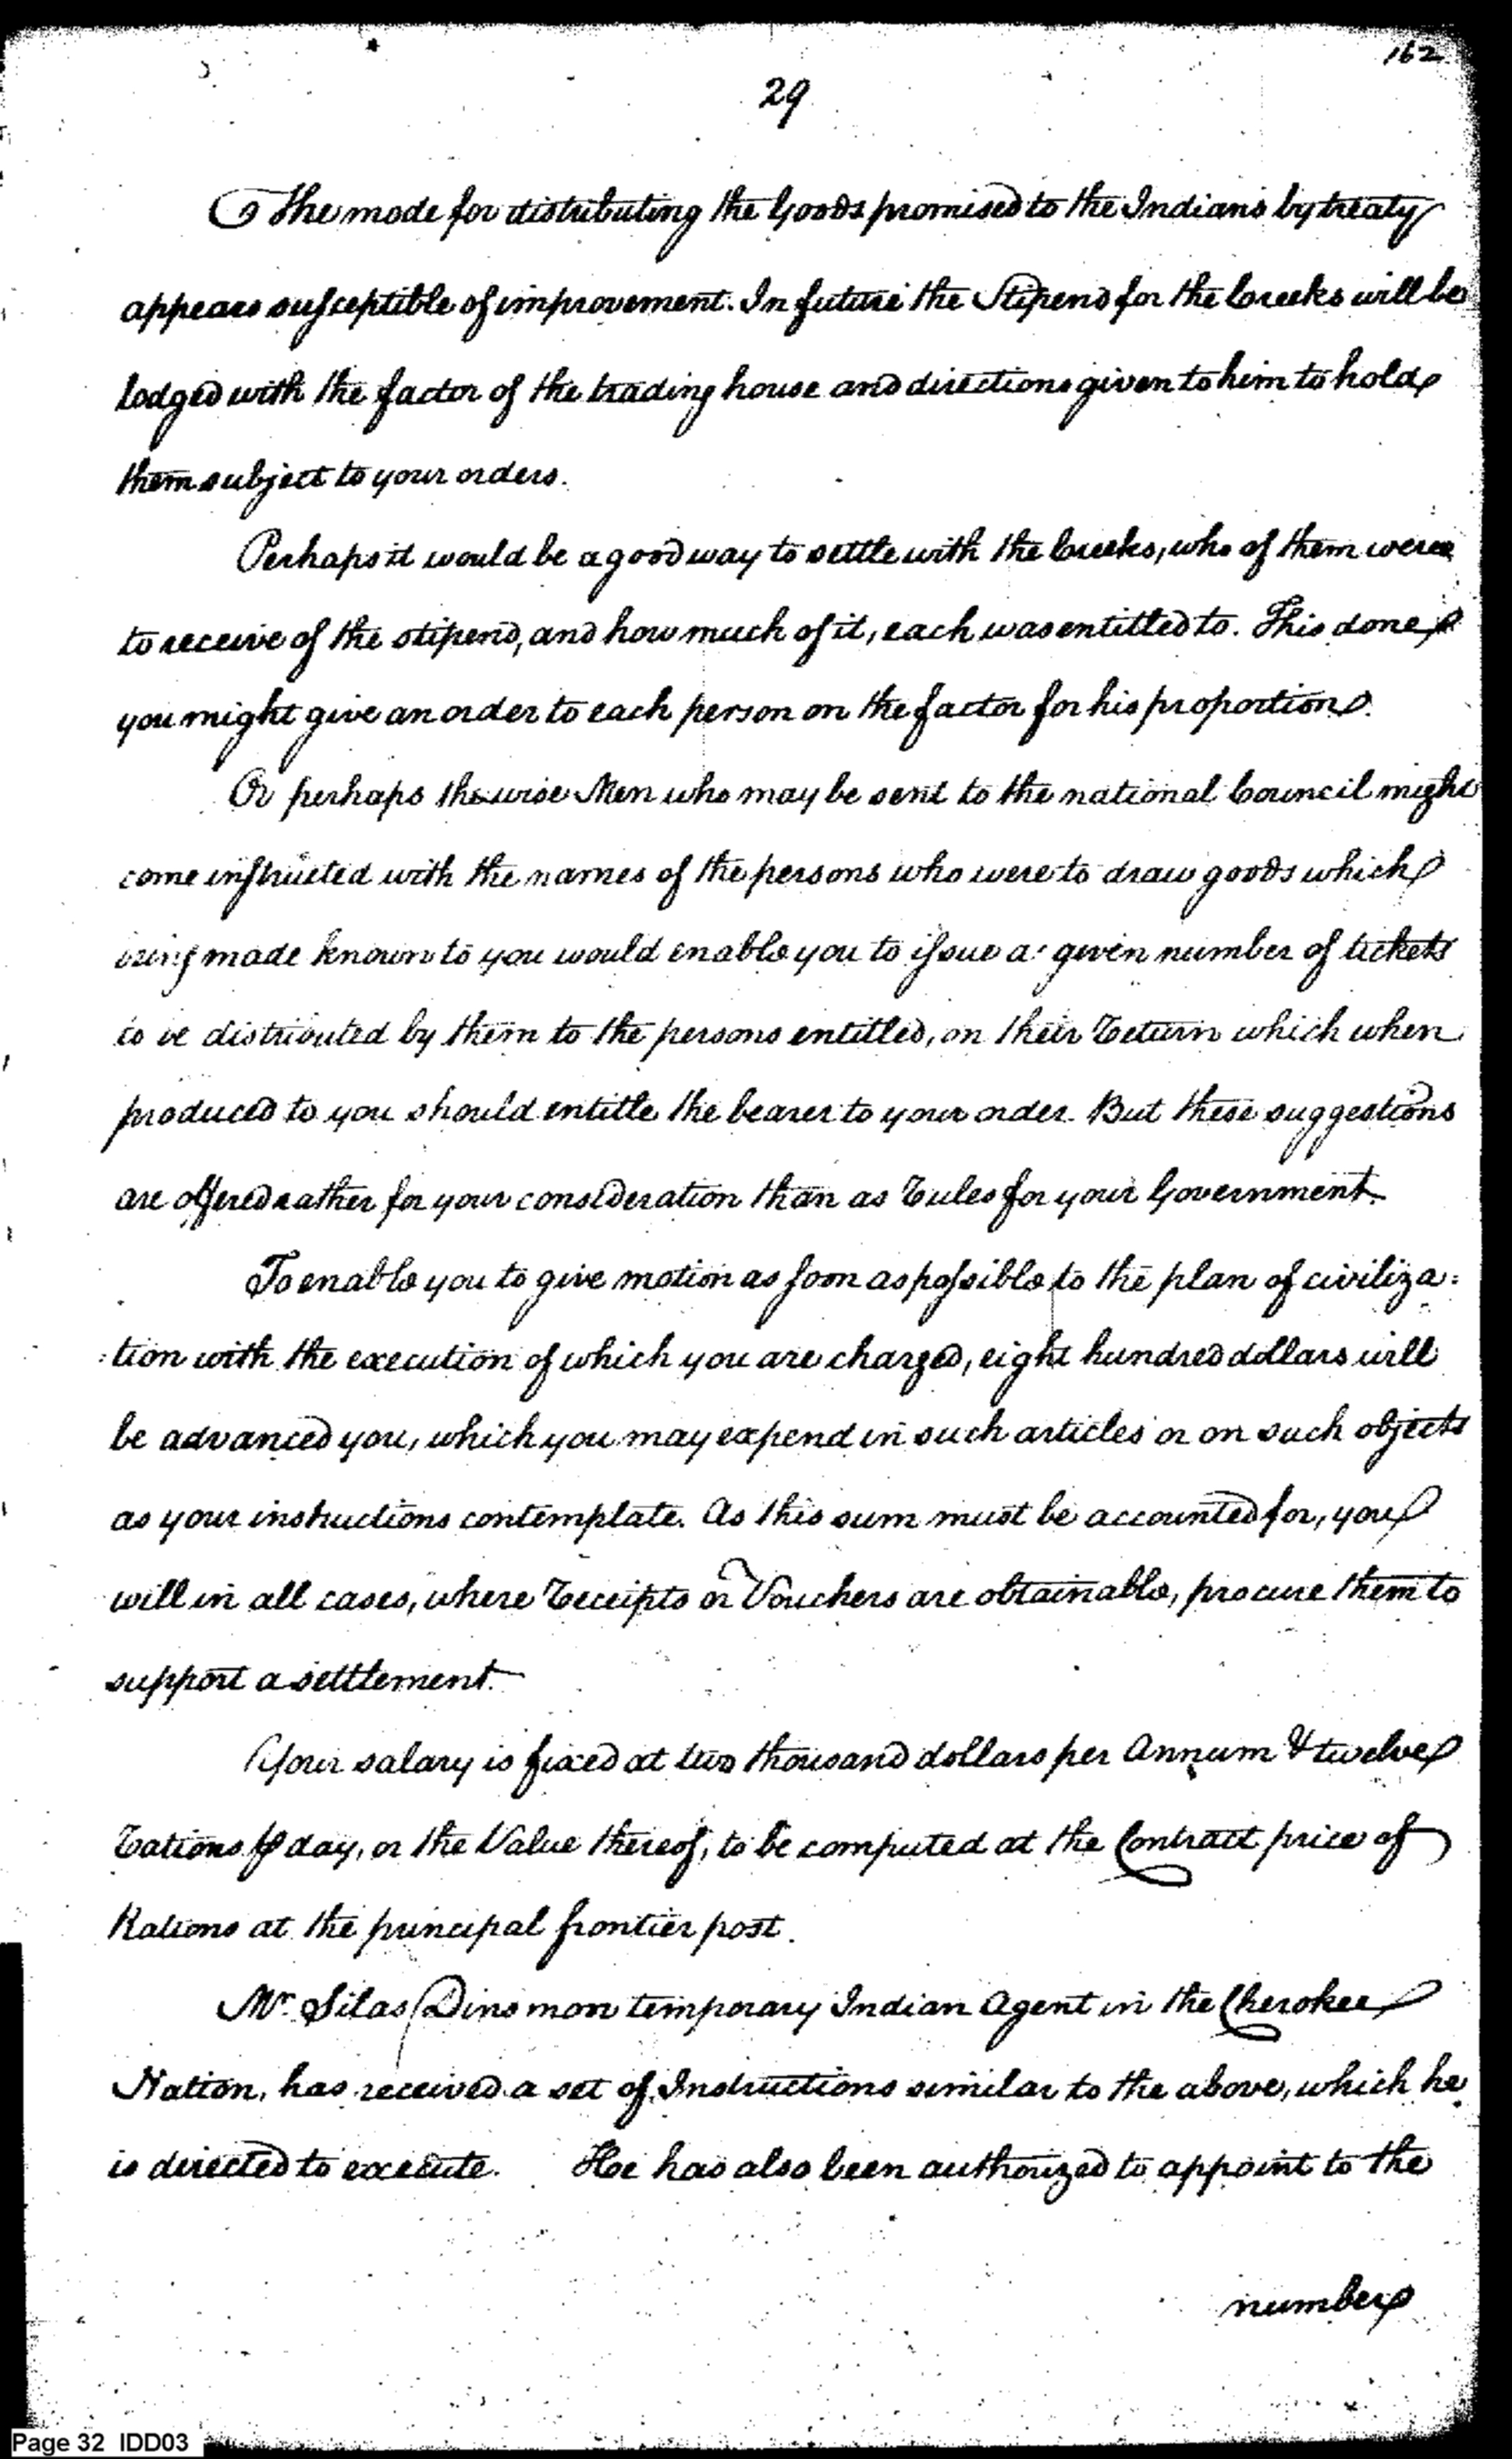 162
29
The mode for distributing the Goods promised to the Indians by treaty
appears susceptible of improvement. In future the Stipend for the Creeks will be
lodged with the factor of the trading house and directions given to him to hold
them subject to your orders.
Perhaps it would be a good way to settle with the Creeks, who of them were
to receive of the stipend, and how much of it, each was entitled to. This done
you might give an order to each person on the factor for his proportion.
Or perhaps the wise Men who may be sent to the national Council might
come instructed with the names of the persons who were to draw goods which
being made known to you would enable you to issue a given number of tickets
to be distributed by them to the persons entitled, on their Return which when
produced to you should entitle the bearer to your order. But these suggestions
are offered rather for your consideration than as Rules for your Government.
To enable you to give motion as soon as possible to the plan of civiliza:
:tion with the execution of which you are charged, eight hundred dollars will
be advanced you, which you may expend in such articles or on such objects
as your instructions contemplate. As this sum must be accounted for, you
will in all cases, where Receipts or Vouchers are obtainable, procure them to
support a settlement.
Your salary is fixed at two thousand dollars per Annum & twelve
Rations ⅌ day, or the Value thereof, to be computed at the Contract price of
Rations at the principal frontier post.
Mr. Silas Dinsmon temporary Indian Agent in the Cherokee
Nation, has received a set of Instructions similar to the above, which he
is directed to execute. He has also been authorized to appoint to the
number
Page 32 IDD03